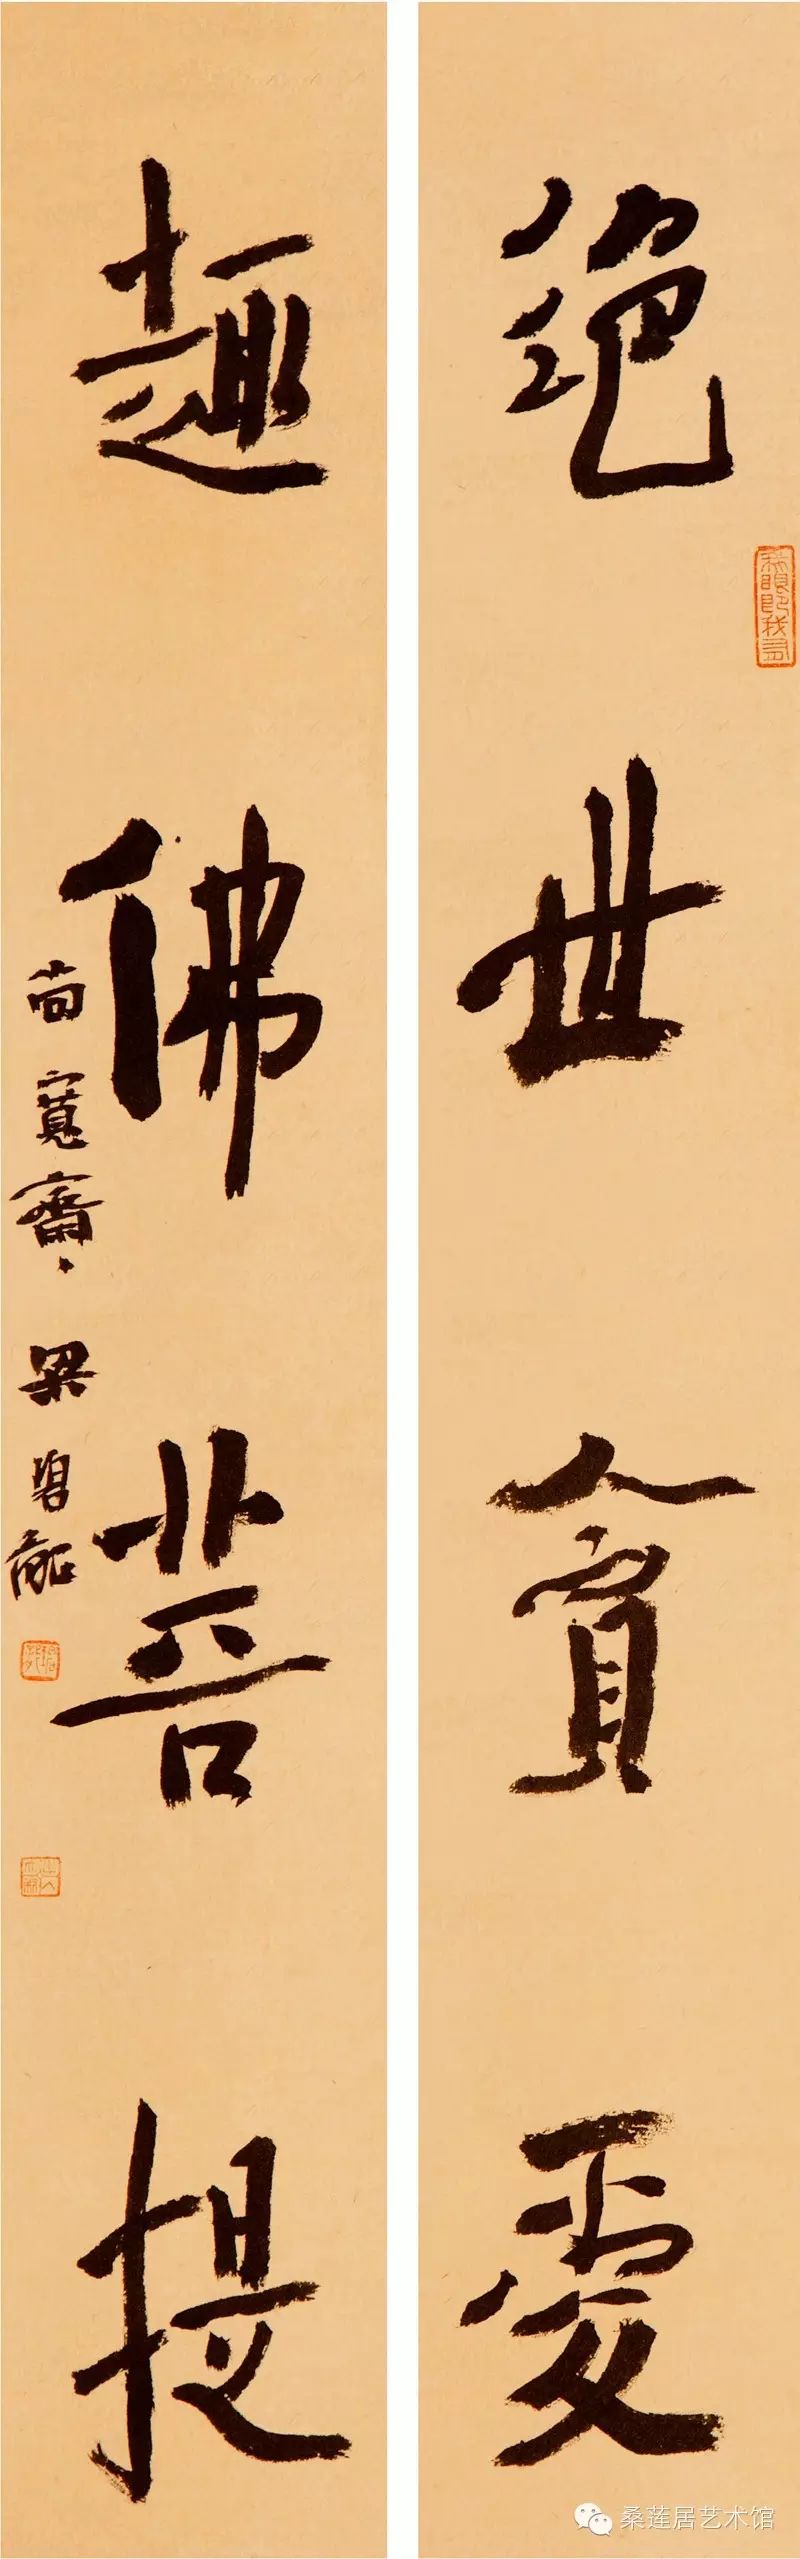 絶世貪愛
趣佛菩提
寬齋 梁
桑莲居艺术馆